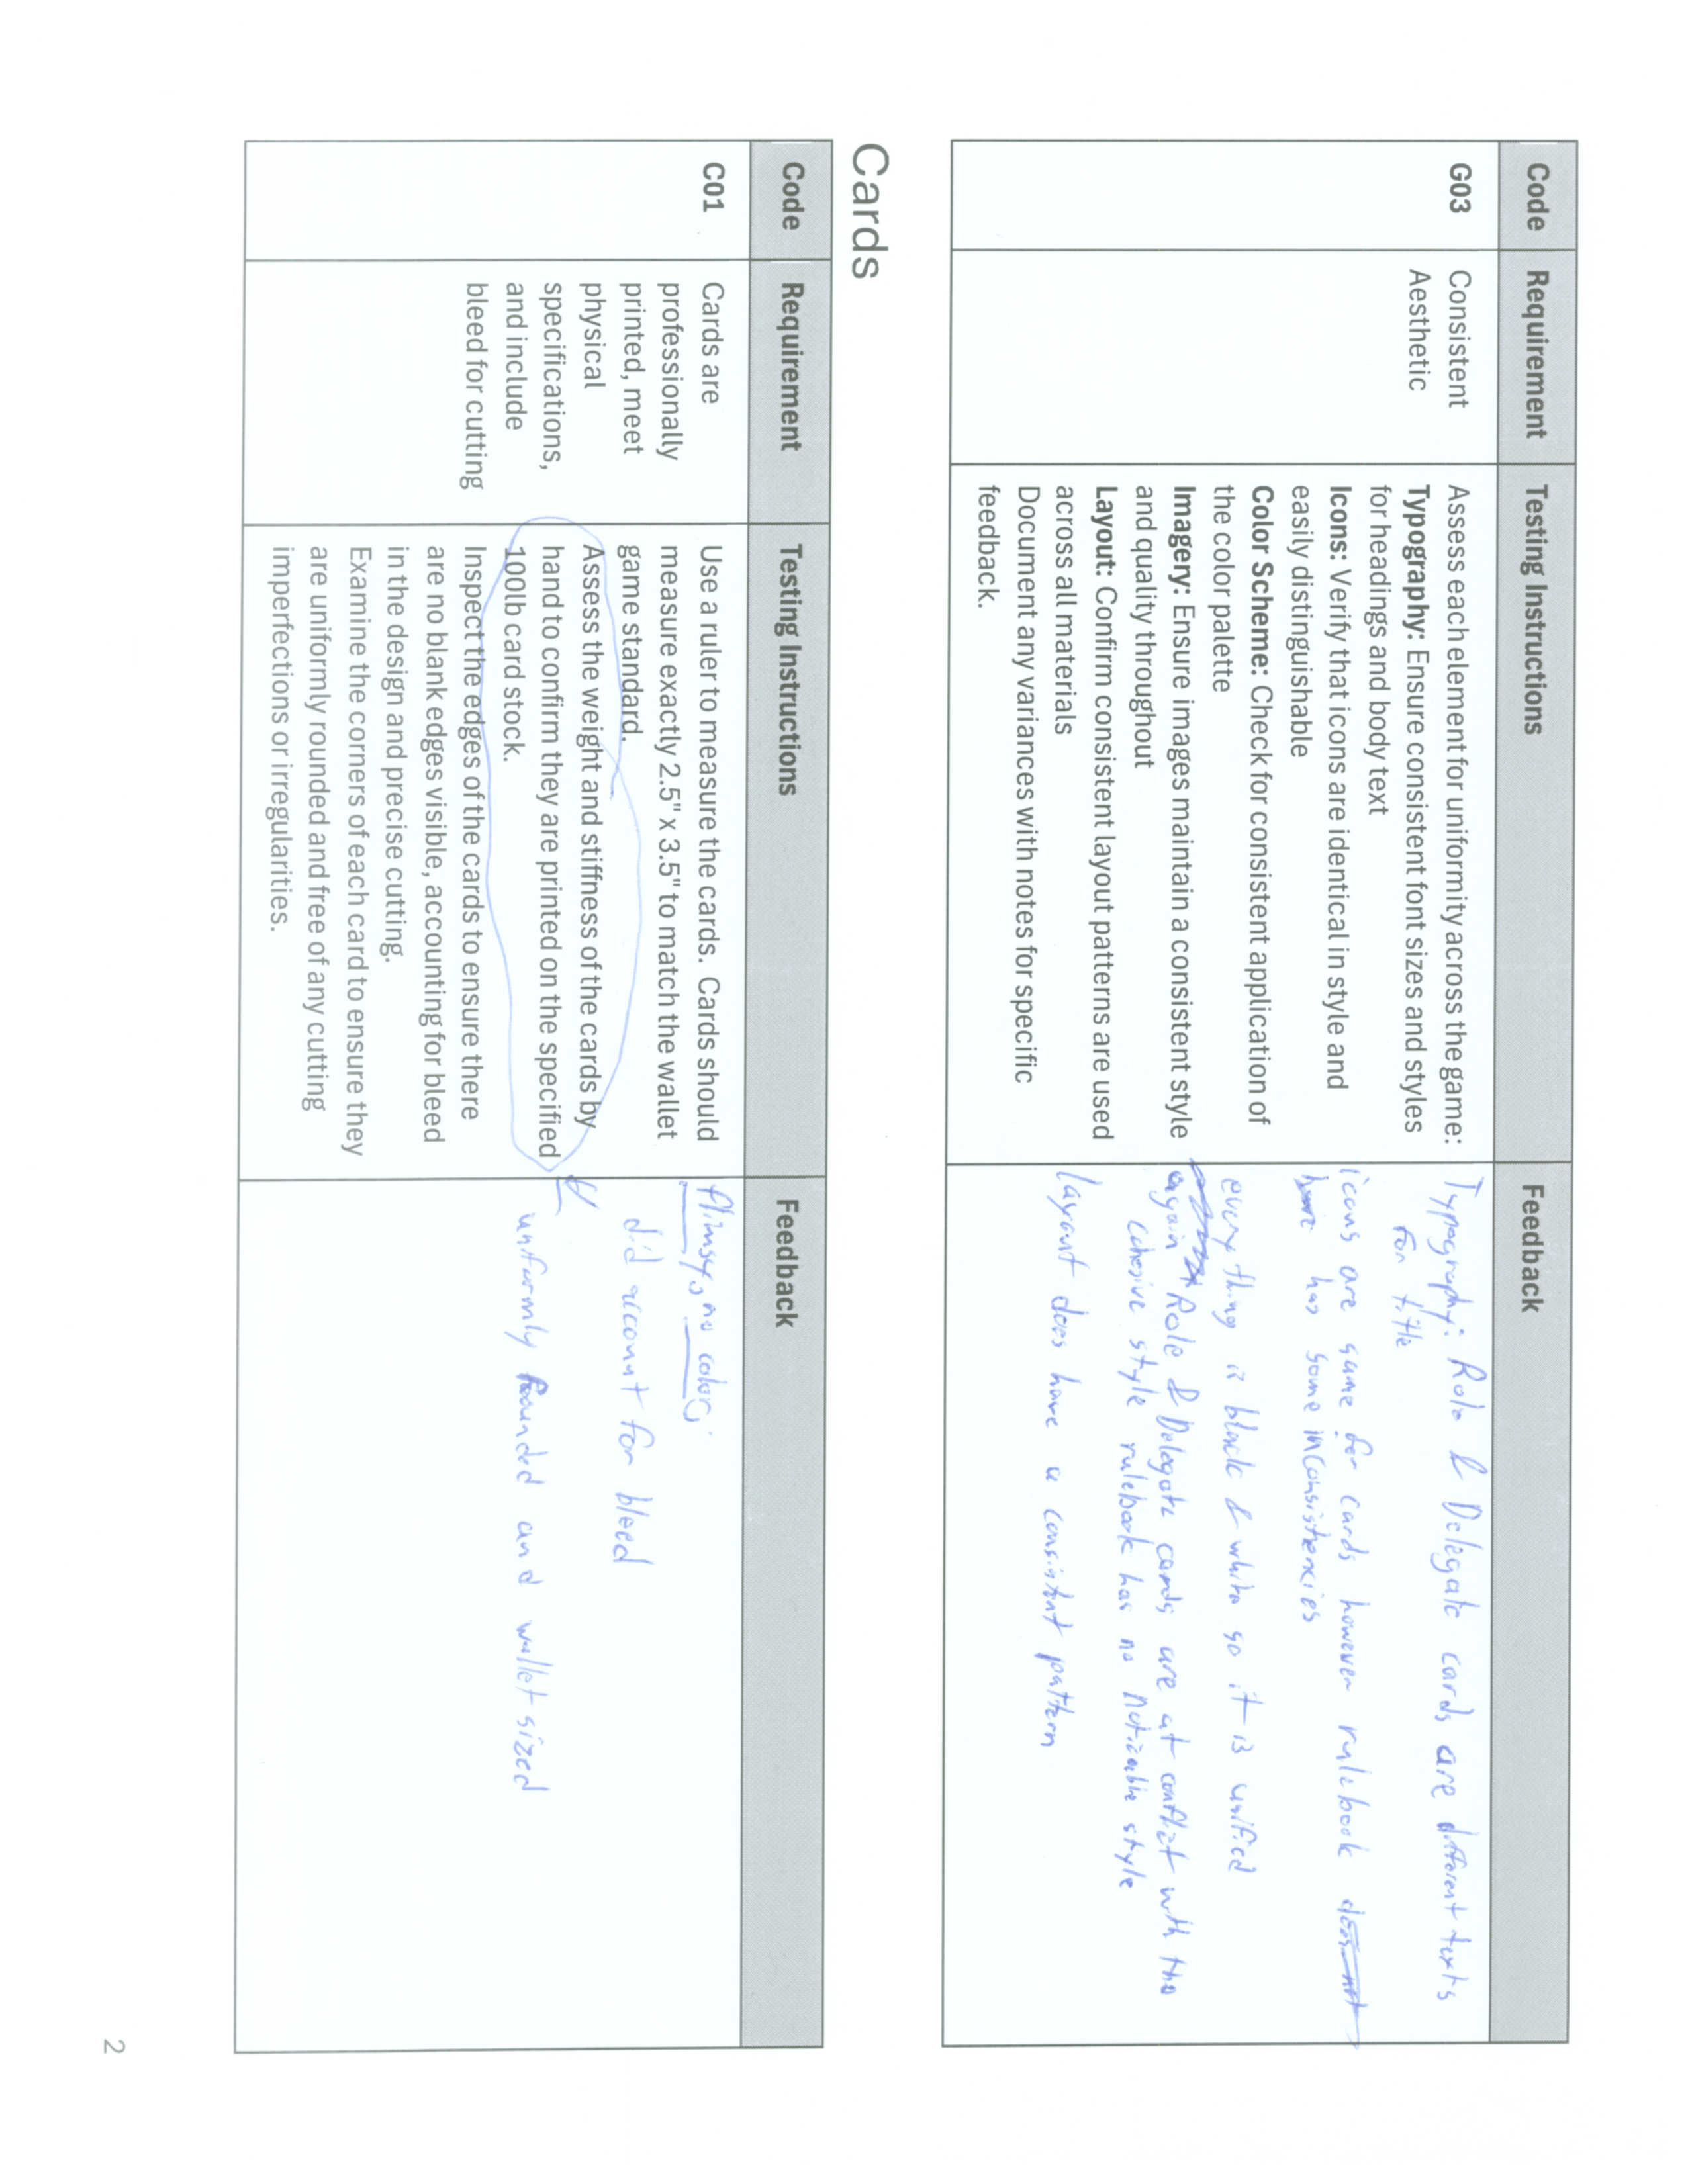 Code Requirement Testing Instructions Feedback
G03
Consistent
Aesthetic
Assess each element for uniformity across the game:
Typography: Ensure consistent font sizes and styles
for headings and body text
Icons: Verify that icons are identical in style and
easily distinguishable
Color Scheme: Check for consistent application of
the color palette
Imagery: Ensure images maintain a consistent style
and quality throughout
Layout: Confirm consistent layout patterns are used
across all materials
Document any variances with notes for specific
feedback.
Typography: Role & Delegate cards are different texts
For title
icons are same for cards however rulebook does not
has some inconsistencies
every thing is black & white so it is unified
again Role & Delegate cards are at conflict with the
cohesive style rulebook has no noticable style
layout does have a consistent pattern
Cards
Code Requirement Testing Instructions Feedback
C01
Cards are
professionally
printed, meet
physical
specifications,
and include
bleed for cutting
Use a ruler to measure the cards. Cards should
measure exactly 2.5" x 3.5" to match the wallet
game standard.
Assess the weight and stiffness of the cards by
hand to confirm they are printed on the specified
100lb card stock.
Inspect the edges of the cards to ensure there
are no blank edges visible, accounting for bleed
in the design and precise cutting.
Examine the corners of each card to ensure they
are uniformly rounded and free of any cutting
imperfections or irregularities.
flimsy, no color,
did account for bleed
uniformly rounded and wallet sized
2